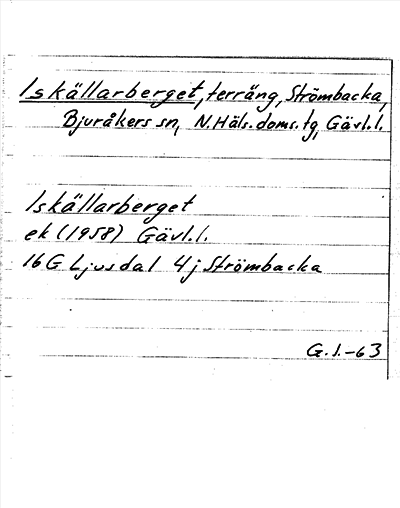 Iskällarberget, terräng, Strömbacka,
Bjuråkers sn, N.Häls.doms.tg, Gävl.l.
Iskällarberget
ek (1958) Gävl.l.
16 G Ljusdal 4j Strömbacka
G.I.-63